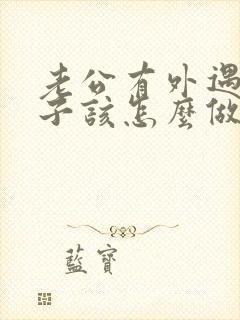 老公有外遇
子該怎麼做
藍寶